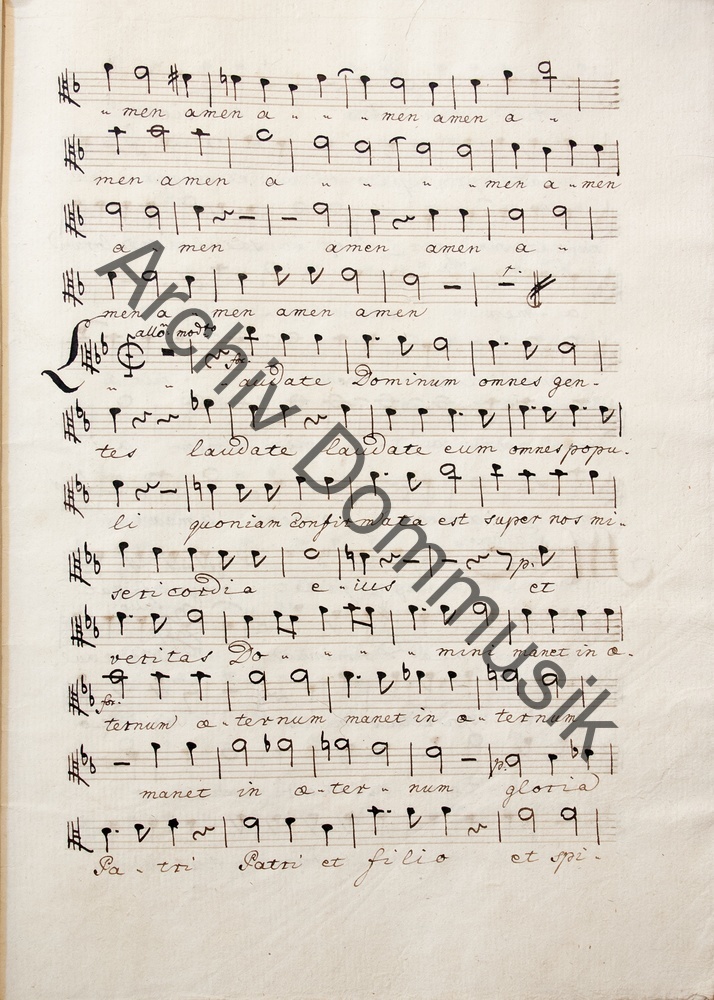 „ men amen a „ „ „ men amen a „
men amen a „ „ „ „ men a „ men
a men amen amen a „
men a men amen amen
allo: modto
for:
Laudate Dominum omnes gen-
tes laudate laudate eum omnes popu-
li quoniam confirmata est super nos mi-
p:
sericordia e-ius et
veritas Do „ „ „ „ mini manet in æ-
for:
ternum æ-ternum manet in æ-ternum
p:
manet in æ-ter-num gloria
Pa-tri Patri et filio et spi-
Archiv Dommusik